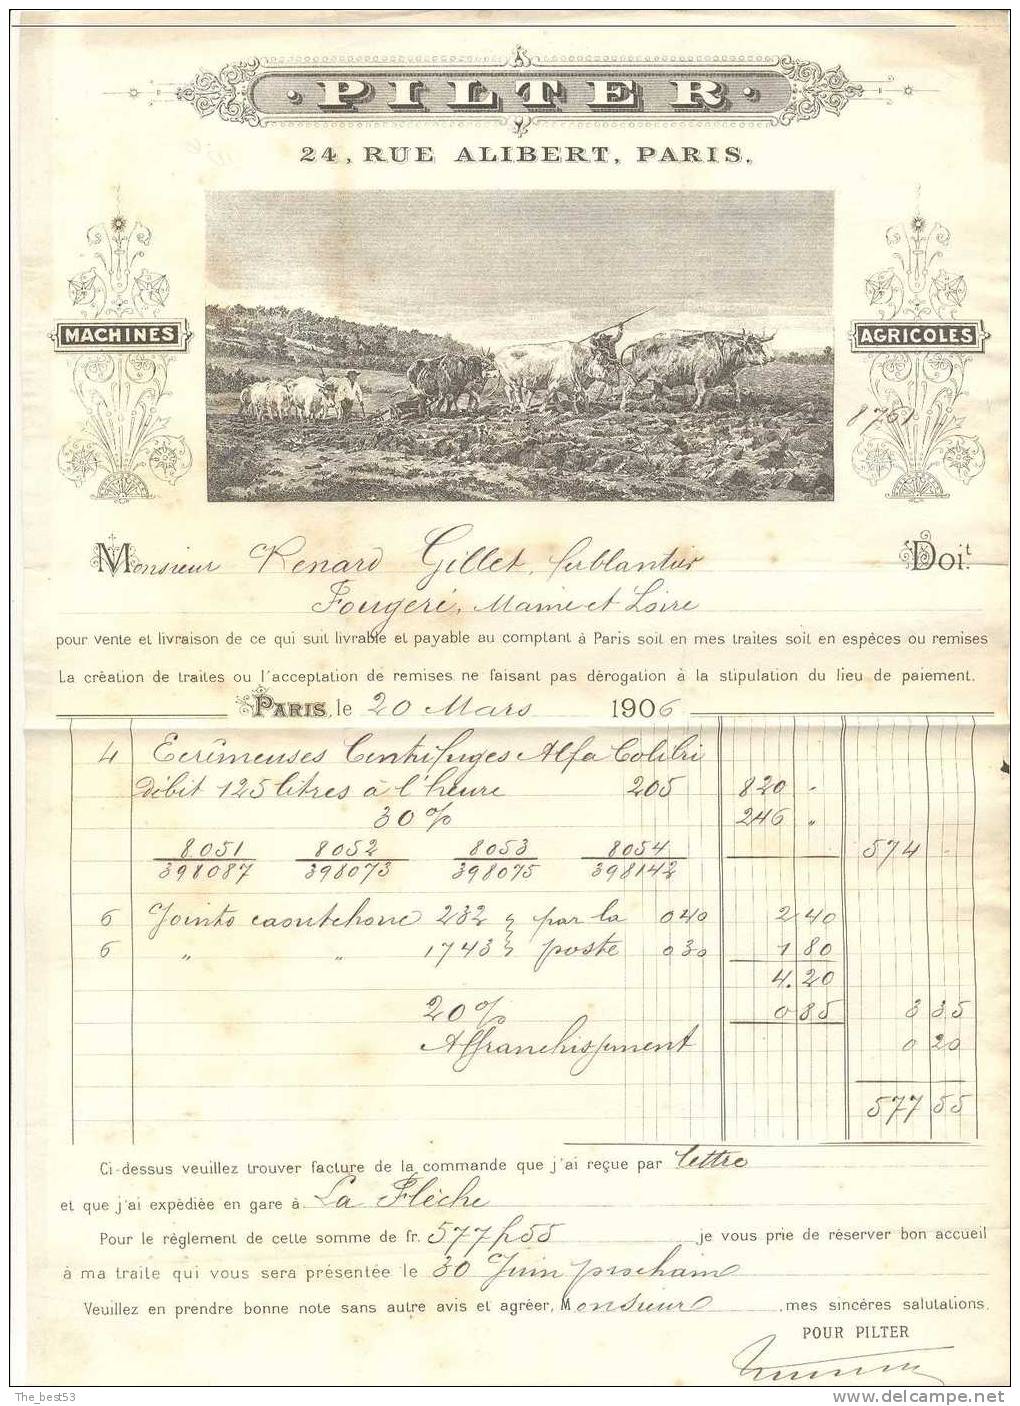 PILTER
24, RUE ALIBERT, PARIS.
MACHINES
AGRICOLES
8761
Monsieur Renard Gillet, ferblantier Doit
Fougeré, Maine et Loire
pour vente et livraison de ce qui suit livrable et payable au comptant à Paris soit en mes traites soit en espèces ou remises
La création de traites ou l'acceptation de remises ne faisant pas dérogation à la stipulation du lieu de paiement.
PARIS, le 20 Mars 1906
4 Ecrêmeuses Centrifuges Alfa Colibri
Débit 125 litres à l'heure 205 820 "
30% 246 "
8051 8052 8053 8054 574 -
398087 398073 398075 398142
6 Joints caoutchouc 232 } par la 0 40 2 40
6 " " 1743 } poste 0 30 1 80
4.20
20% 0 85 3 35
Affranchissement 0 20
577 55
Ci-dessus veuillez trouver facture de la commande que j'ai reçue par lettre
et que j'ai expédiée en gare à La Flèche
Pour le règlement de cette somme de fr. 577f55 je vous prie de réserver bon accueil
à ma traite qui vous sera présentée le 30 Juin prochain
Veuillez en prendre bonne note sans autre avis et agréer, Monsieur, mes sincères salutations.
POUR PILTER
The_best53
www.delcampe.net